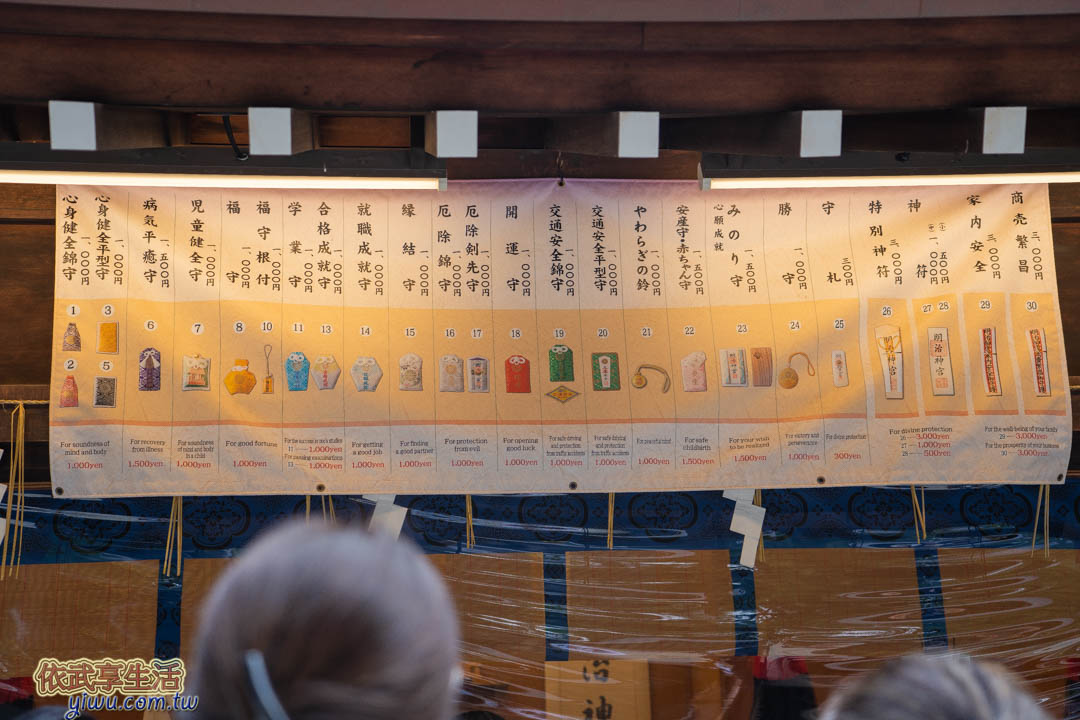 心身健全錦守 一、〇〇〇円
心身健全平型守 一、〇〇〇円
病気平癒守 一、五〇〇円
児童健全守 一、〇〇〇円
福守 一、〇〇〇円
福守根付 一、〇〇〇円
学業守 一、〇〇〇円
合格成就守 一、〇〇〇円
就職成就守 一、〇〇〇円
縁結守 一、〇〇〇円
厄除錦守 一、〇〇〇円
厄除剣先守 一、〇〇〇円
開運守 一、〇〇〇円
交通安全錦守 一、〇〇〇円
交通安全平型守 一、〇〇〇円
やわらぎの鈴 一、〇〇〇円
安産守・赤ちゃん守 一、五〇〇円
心願成就
みのり守 一、五〇〇円
勝守 一、〇〇〇円
守札 三〇〇円
特別神符 三、〇〇〇円
神符
一、〇〇〇円
五〇〇円
家内安全 三、〇〇〇円
商売繁昌 三、〇〇〇円
1 3 6 7 8 10 11 13 14 15 16 17 18 19 20 21 22 23 24 25 26 27 28 29 30
2 5
明治神宮
For soundness of
mind and body
1,000yen
For recovery
from illness
1,500yen
For soundness
of mind and body
in a child
1,000yen
For good fortune
1,000yen
For the success in one's studies
11 1,000yen
For passing examinations
13 1,000yen
For getting
a good job
1,000yen
For finding
a good partner
1,000yen
For protection
from evil
1,000yen
For opening
good luck
1,000yen
For safe driving and protection
from traffic accidents
1,000yen
For safe driving
and protection
from traffic accidents
1,000yen
For peaceful mind
1,000yen
For safe
childbirth
1,500yen
For your wish
to be realized
1,500yen
For victory and
perseverance
1,000yen
For divine protection
300yen
For divine protection
26 3,000yen
27 1,000yen
28 500yen
For the well being of your family
29 3,000yen
For the prosperity of your business
30 3,000yen
治神
依武享生活
yiwu.com.tw